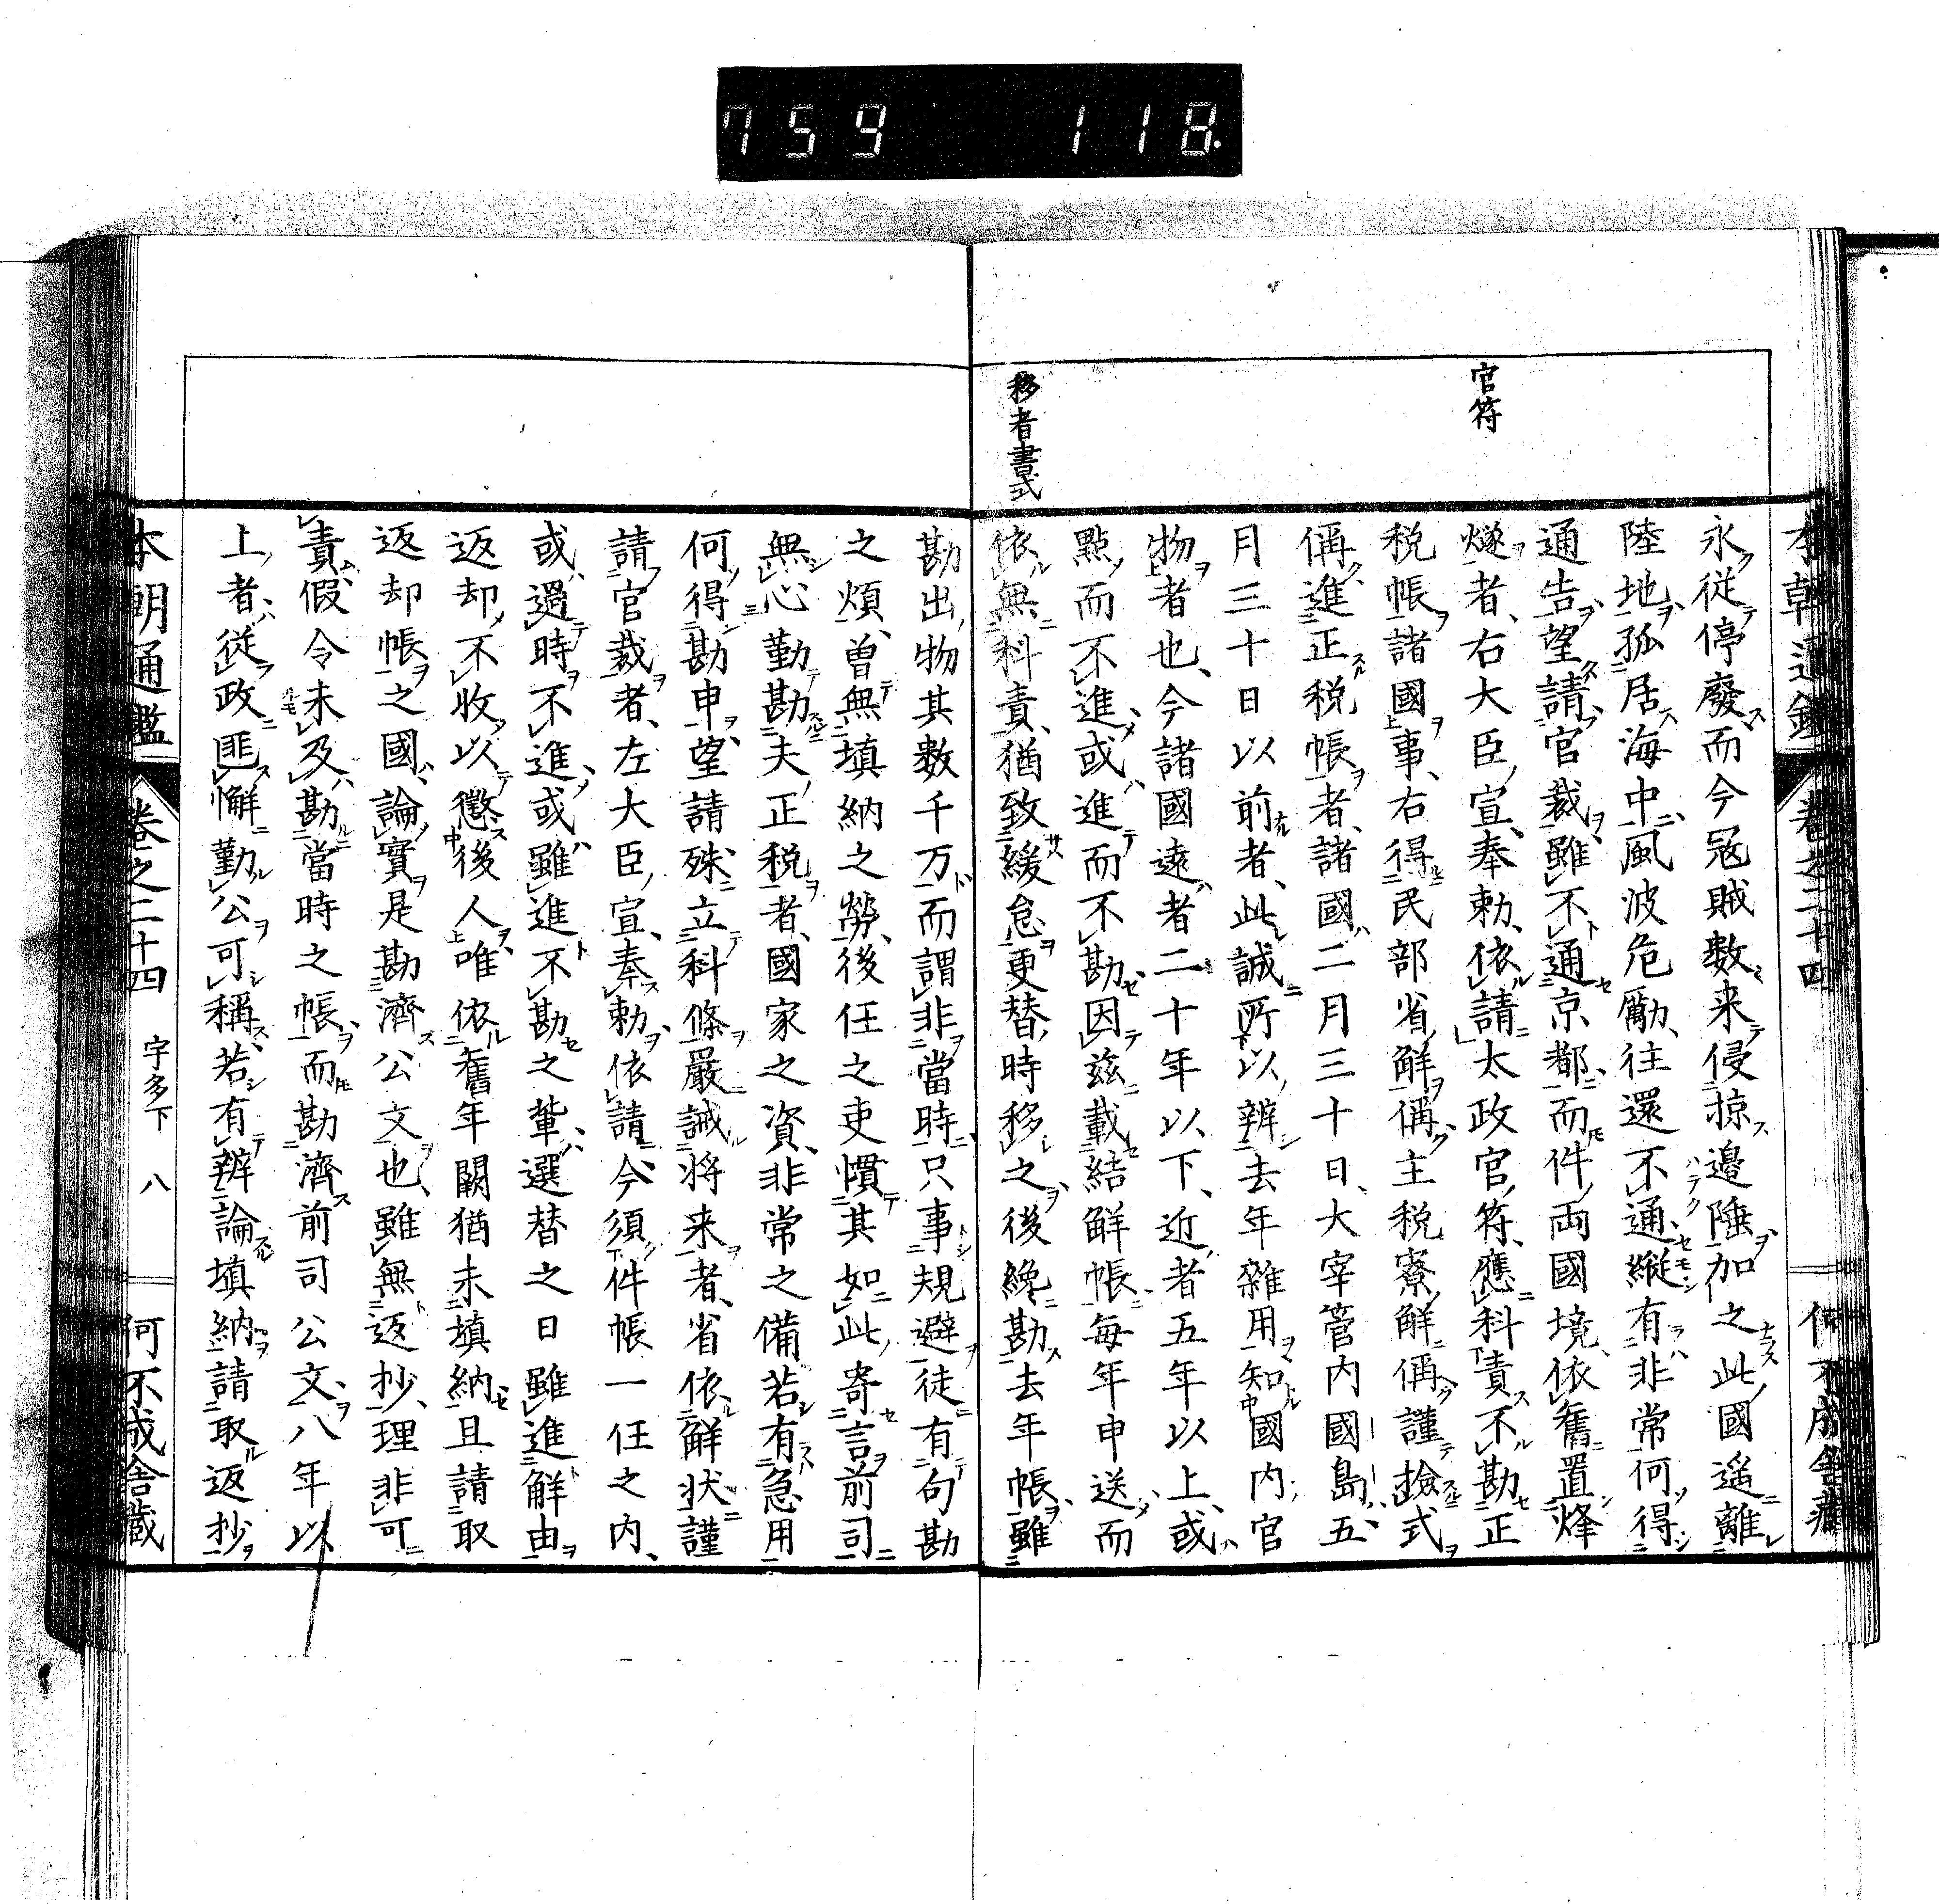 759 118.
官符
移者書式
本朝通鑑 卷之二十四 何不成舍藏
永從停廢而今冦賊数来侵掠邉陲加之此國遥離
陸地孤居海中風波危勵往還不通縦有非常何得
通告望請官裁雖不通京都而件両國境依舊置烽
燧者右大臣宣奉勅依請太政官符應科責不勘正
税帳諸國事右得民部省解偁主税寮解偁謹撿式
偁進正税帳者諸國二月三十日大宰管内國島五
月三十日以前者此誠所以辨去年雑用知國内官
物者也今諸國遠者二十年以下近者五年以上或
點而不進或進而不勘因兹載結解帳毎年申送而
依無科責猶致緩怠更替時移之後纔勘去年帳雖
勘出物其数千万而謂非當時只事規避徒有句勘
之煩曽無填納之勞後任之吏慣其如此寄言前司
無心勤勘夫正税者國家之資非常之備若有急用
何得勘申望請殊立科條嚴誡将来者省依解状謹
請官裁者左大臣宣奉勅依請今須件帳一任之内
或過時不進或雖進不勘之輩選替之日雖進解由
返却不收以懲後人唯依舊年闕猶未填納且請取
返却帳之國論實是勘濟公文也雖無返抄理非可
責假令未及勘當時之帳而勘濟前司公文八年以
上者従政匪懈勤公可稱若有辨論填納請取返抄
本朝通鑑 卷之二十四 宇多下 八 何不成舍藏